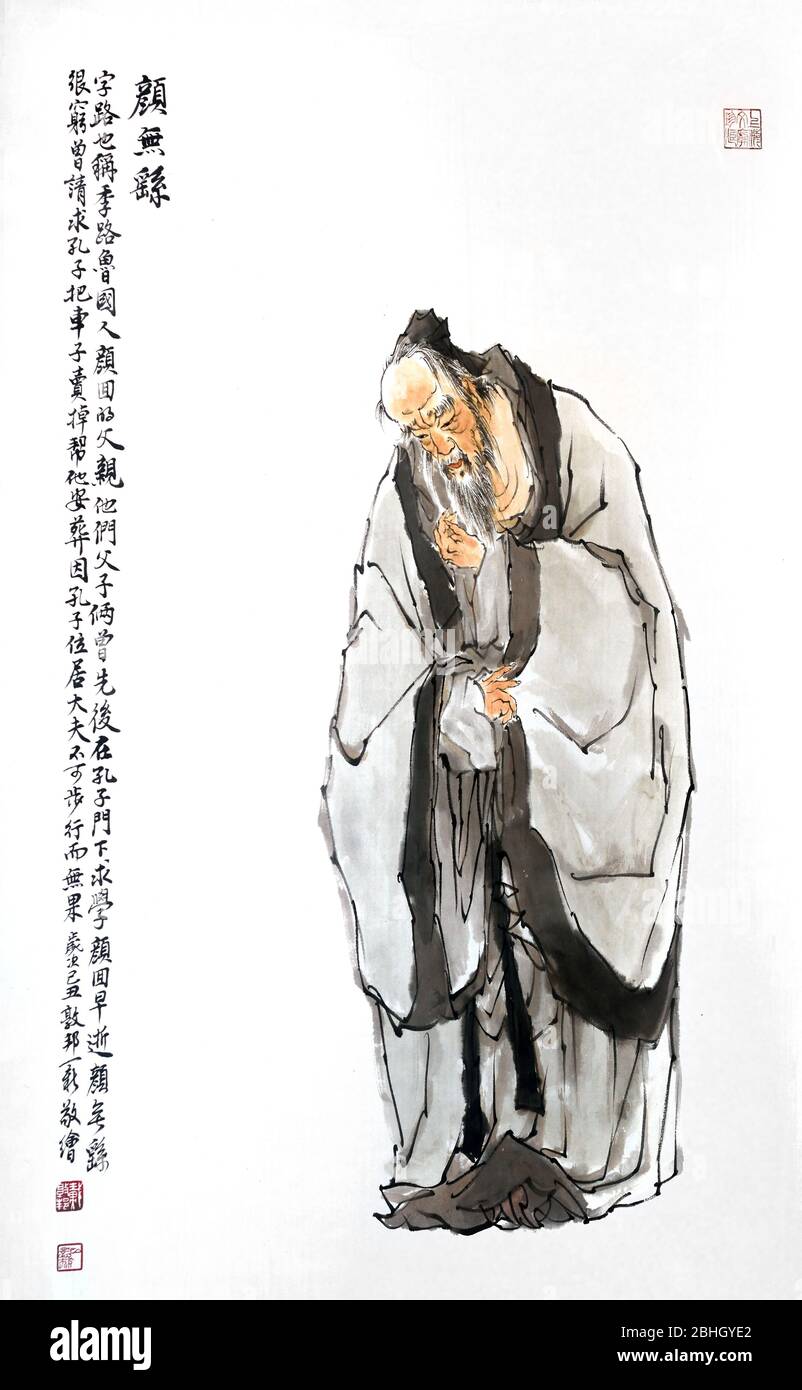 顔無繇
字路也稱季路魯國人顔回的父親他們父子倆曾先後在孔子門下求學顔回早逝顔无繇
很窮曾請求孔子把車子賣掉幫他安葬因孔子位居大夫不可步行而無果歲次己丑敦邦敬繪
戴敦邦
alamy
alamy
alamy
a
a
a
alamy
Image ID: 2BHGYE2
www.alamy.com